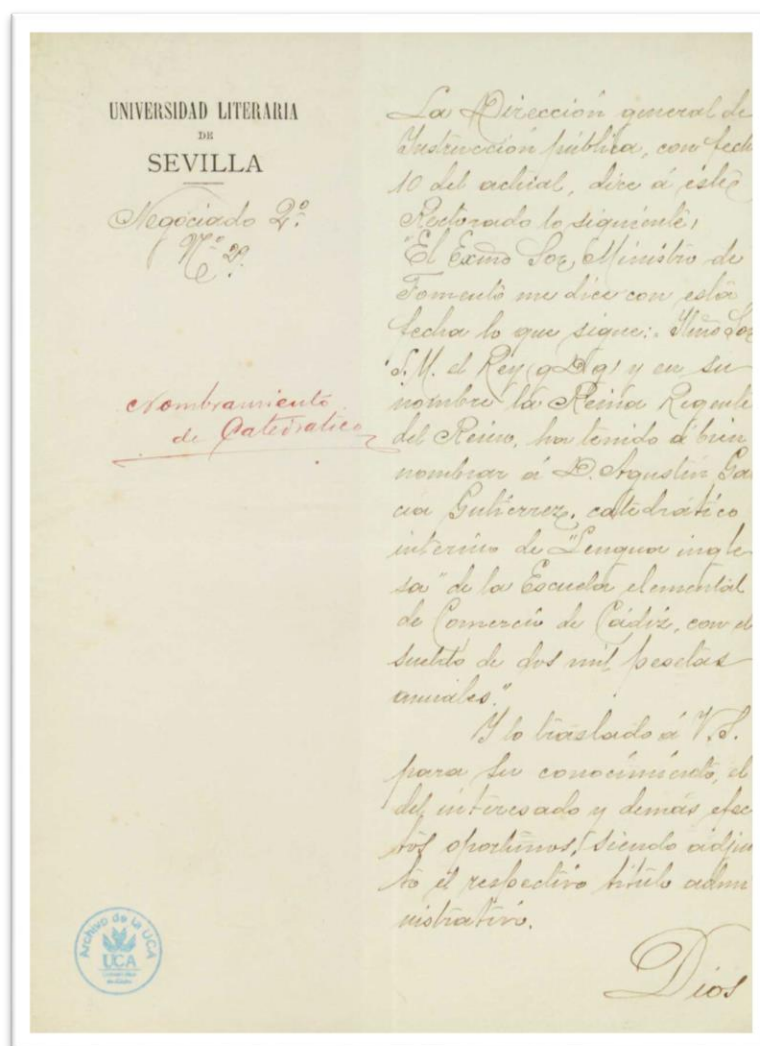 UNIVERSIDAD LITERARIA
DE
SEVILLA
Negociado 2º
Nº 2º.
Nombramiento
de Catedratico
La Dirección general de
Instrucción pública, con fech
10 del actual, dice á este
Rectorado lo siguiente,
"El Exmo Sor Ministro de
Fomento me dice con esta
fecha lo que sigue: Ilmo Sor
S.M. el Rey (q D g) y en su
nombre la Reina Regente
del Reino, ha tenido á bien
nombrar á D. Agustin Gar
cia Gutiérrez, catedrático
interino de "Lengua ingle
sa" de la Escuela elemental
de Comercio de Cádiz, con el
sueldo de dos mil pesetas
anuales."
Y lo traslado á V.S.
para su conocimiento, el
del interesado y demás efec
tos oportunos, siendo adjun
to el respectivo título admi
nistrativo.
Dios
Archivo de la UCA
UCA